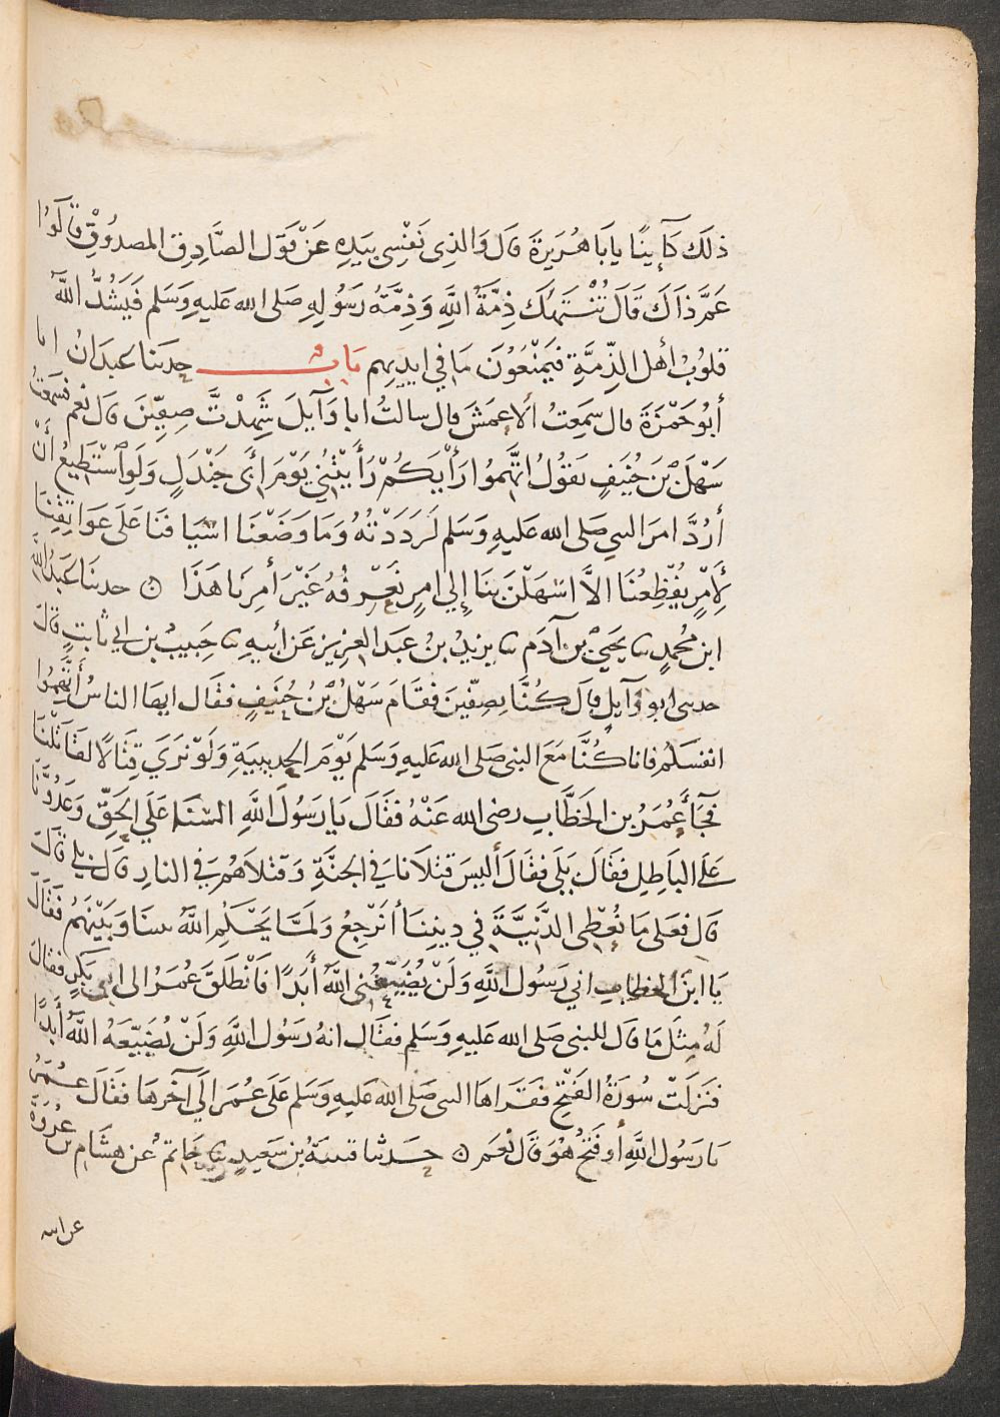 ذلك كآينًا يابا هُرَيرةَ قال وَالذِى نَفْسِى بِيَدِهِ عَنْ قَوَلِ الصَّادِقِ المصدُوْقِ قالوُا
عَمَّ ذَاكَ قَالَ تُنْتَهَكُ ذِمَّةُ اللَّهِ وَذِمَّةُ رَسُولِهِ صَلى الله عَليهِ وَسَلم فيَشُدُّ اللَّهُ
قلوُبَ أهل الذِّمَّةِ فيَمْنَعُوْنَ مَا في ايديهم باب حدثنا عبدانُ انا
أبُو حَمْزَةَ قال سَمِعتُ الاعمَشَ قال سالتُ ابا وَآيلَ شَهِدْتَّ صِفِّينَ قال نعم فسَمعتُ
سَهْلَ بْنَ حُنَيفٍ يقوُلُ اتَّهِمُوا رَأْيَكُمْ رَأَيْتُنِي يَوْمَ أَبي جَنْدَلٍ وَلَوِ اسْتَطِيعُ أَنْ
أرُدَّ امرَ النبي صَلى الله عَليهِ وَسَلم لَرَدَدْتُهُ وَمَا وَضَعْنَا اسْيَافَنَا عَلَى عَوَاتِقِنَا
لِأَمْرٍ يُفْظِعُنَا الاَّ اسْهَلْنَ بنَا إلي امرٍ نَعْرِفُهُ غَيْرَ أمرِنَا هَذَا ۞ حدثنا عَبدُ اللَّهِ
ابن مُحمدٍ ثنا يَحيَي بن آدَم ثنا يزيدُ بنُ عَبدِ العزيز عَن أبيهِ ثنا حَبيبُ بن ابي ثابتٍ قالَ
حدثنى ابو وَآيلٍ قال كُنَّا بصِفّينَ فقَامَ سَهْلُ بْنُ حُنَيفٍ فقال ايها الناسُ أتَّهِمُوا
انفسَكم فانا كُنَّا مَعَ النبى صَلى الله عَليهِ وَسَلم يَوْمَ الحديبيَةِ وَلَوْ نَرَي قِتَالًا لقَاتَلْنَا
فجَآءَ عُمَرُ بن الخطَّابِ رضى الله عَنْهُ فقَالَ يَا رَسُولَ اللَّهِ السْنَا عَلَي الحَقِّ وَعَدُوُّنَا
عَلَي البَاطِلِ فقَالَ بَلَى فقَالَ أليسَ قتلاَنا في الجنَّةِ وَقتلاَهُمْ في النارِ قال بلي قَالَ
قال فعَلى مَا نُعْطِى الدَّنيَّةَ في ديننَا أنَرْجِعُ وَلمَّا يَحْكُمِ اللَّهُ بيننَا وَبَيْنَهُم فقَالَ
يَا ابنَ الخطابِ اني رَسُولُ اللَّهِ وَلَنْ يُضَيِّعَنى اللَّهُ أبَدًا فَانْطَلَقَ عُمَرُ الى ابى بَكرٍ فقالَ
لَهُ مِثلَ مَا قال للنبى صَلى الله عَليهِ وَسَلم فقَال انهُ رَسُولُ اللَّهِ وَلَنْ يُضَيِّعَهُ اللَّهُ أَبَدًا
فنزلَتْ سُورَةُ الفَتْحِ فقَرَاهَا النبى صَلى الله عَليهِ وَسَلم عَلَى عُمَرَ الَي آخرهَا فقَالَ عُمَرُ
يَا رَسُولَ اللَّهِ أَوَفَتْحٌ هُوَ قَالَ نعَم ۞ حَدثنا قتيبَةُ بن سَعيدٍ ثنا حَاتم عن هشَامِ بن عُرْوَةَ
عن ابيه